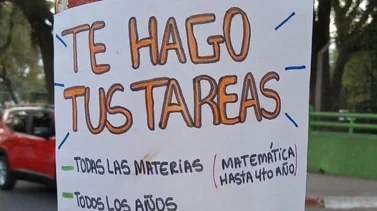 TE HAGO
TUS TAREAS
- TODAS LAS MATERIAS (MATEMÁTICA
HASTA 4TO AÑO)
- TODOS LOS AÑOS